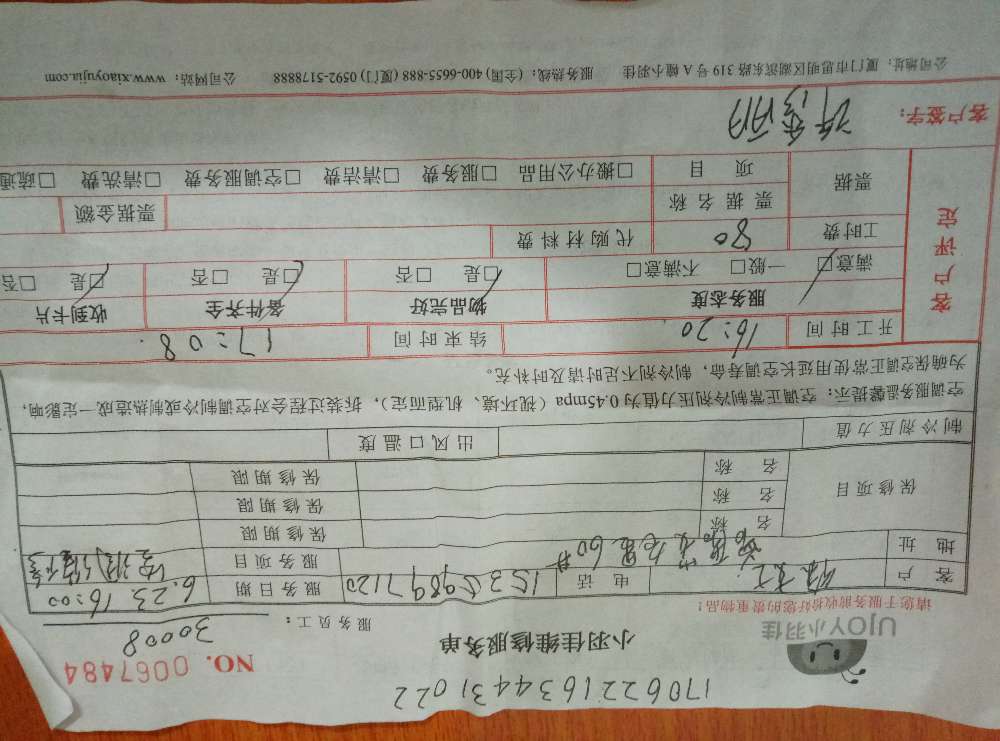 170622163443 1022
UJOY小羽佳
请您于服务前收拾好您的贵重物品!
小羽佳维修服务单
NO. 0067484
服务员工: 30008
客户 电话 15359897120 服务日期 6.23 16:00
地址 服务项目
保修项目 名称 保修期限
名称 保修期限
名称 保修期限
制冷剂压力值 出风口温度
空调服务温馨提示:空调正常制冷剂压力值为0.45mpa(视环境、机型而定),拆装过程会对空调制冷或制热造成一定影响,
为确保空调正常使用延长空调寿命,制冷剂不足时请及时补充。
客户评定
开工时间 16:20 结束时间 17:08.
服务态度 物品完好 备件齐全 收到卡片
满意□ 一般□ 不满意□ □是 □否 □是 □否 □是 □否
工时费 80 代购材料费
票据 票据名称 票据金额
项目 □搬办公用品 □服务费 □清洁费 □空调服务费 □清洗费 □疏通
客户签字:
公司地址:厦门市思明区湖滨东路319号A幢小羽佳 服务热线:(全国)400-6655-888(厦门)0592-5178888 公司网站:www.xiaoyujia.com